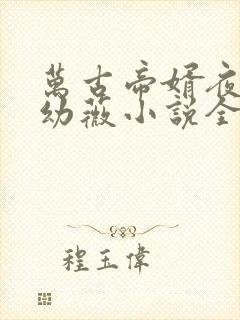 萬古帝婿夜
幼薇小說全
程玉偉